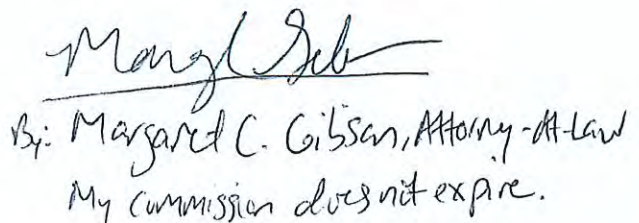 By: Margaret C. Gibson, Attorny-At-Law
My commission does not expire.